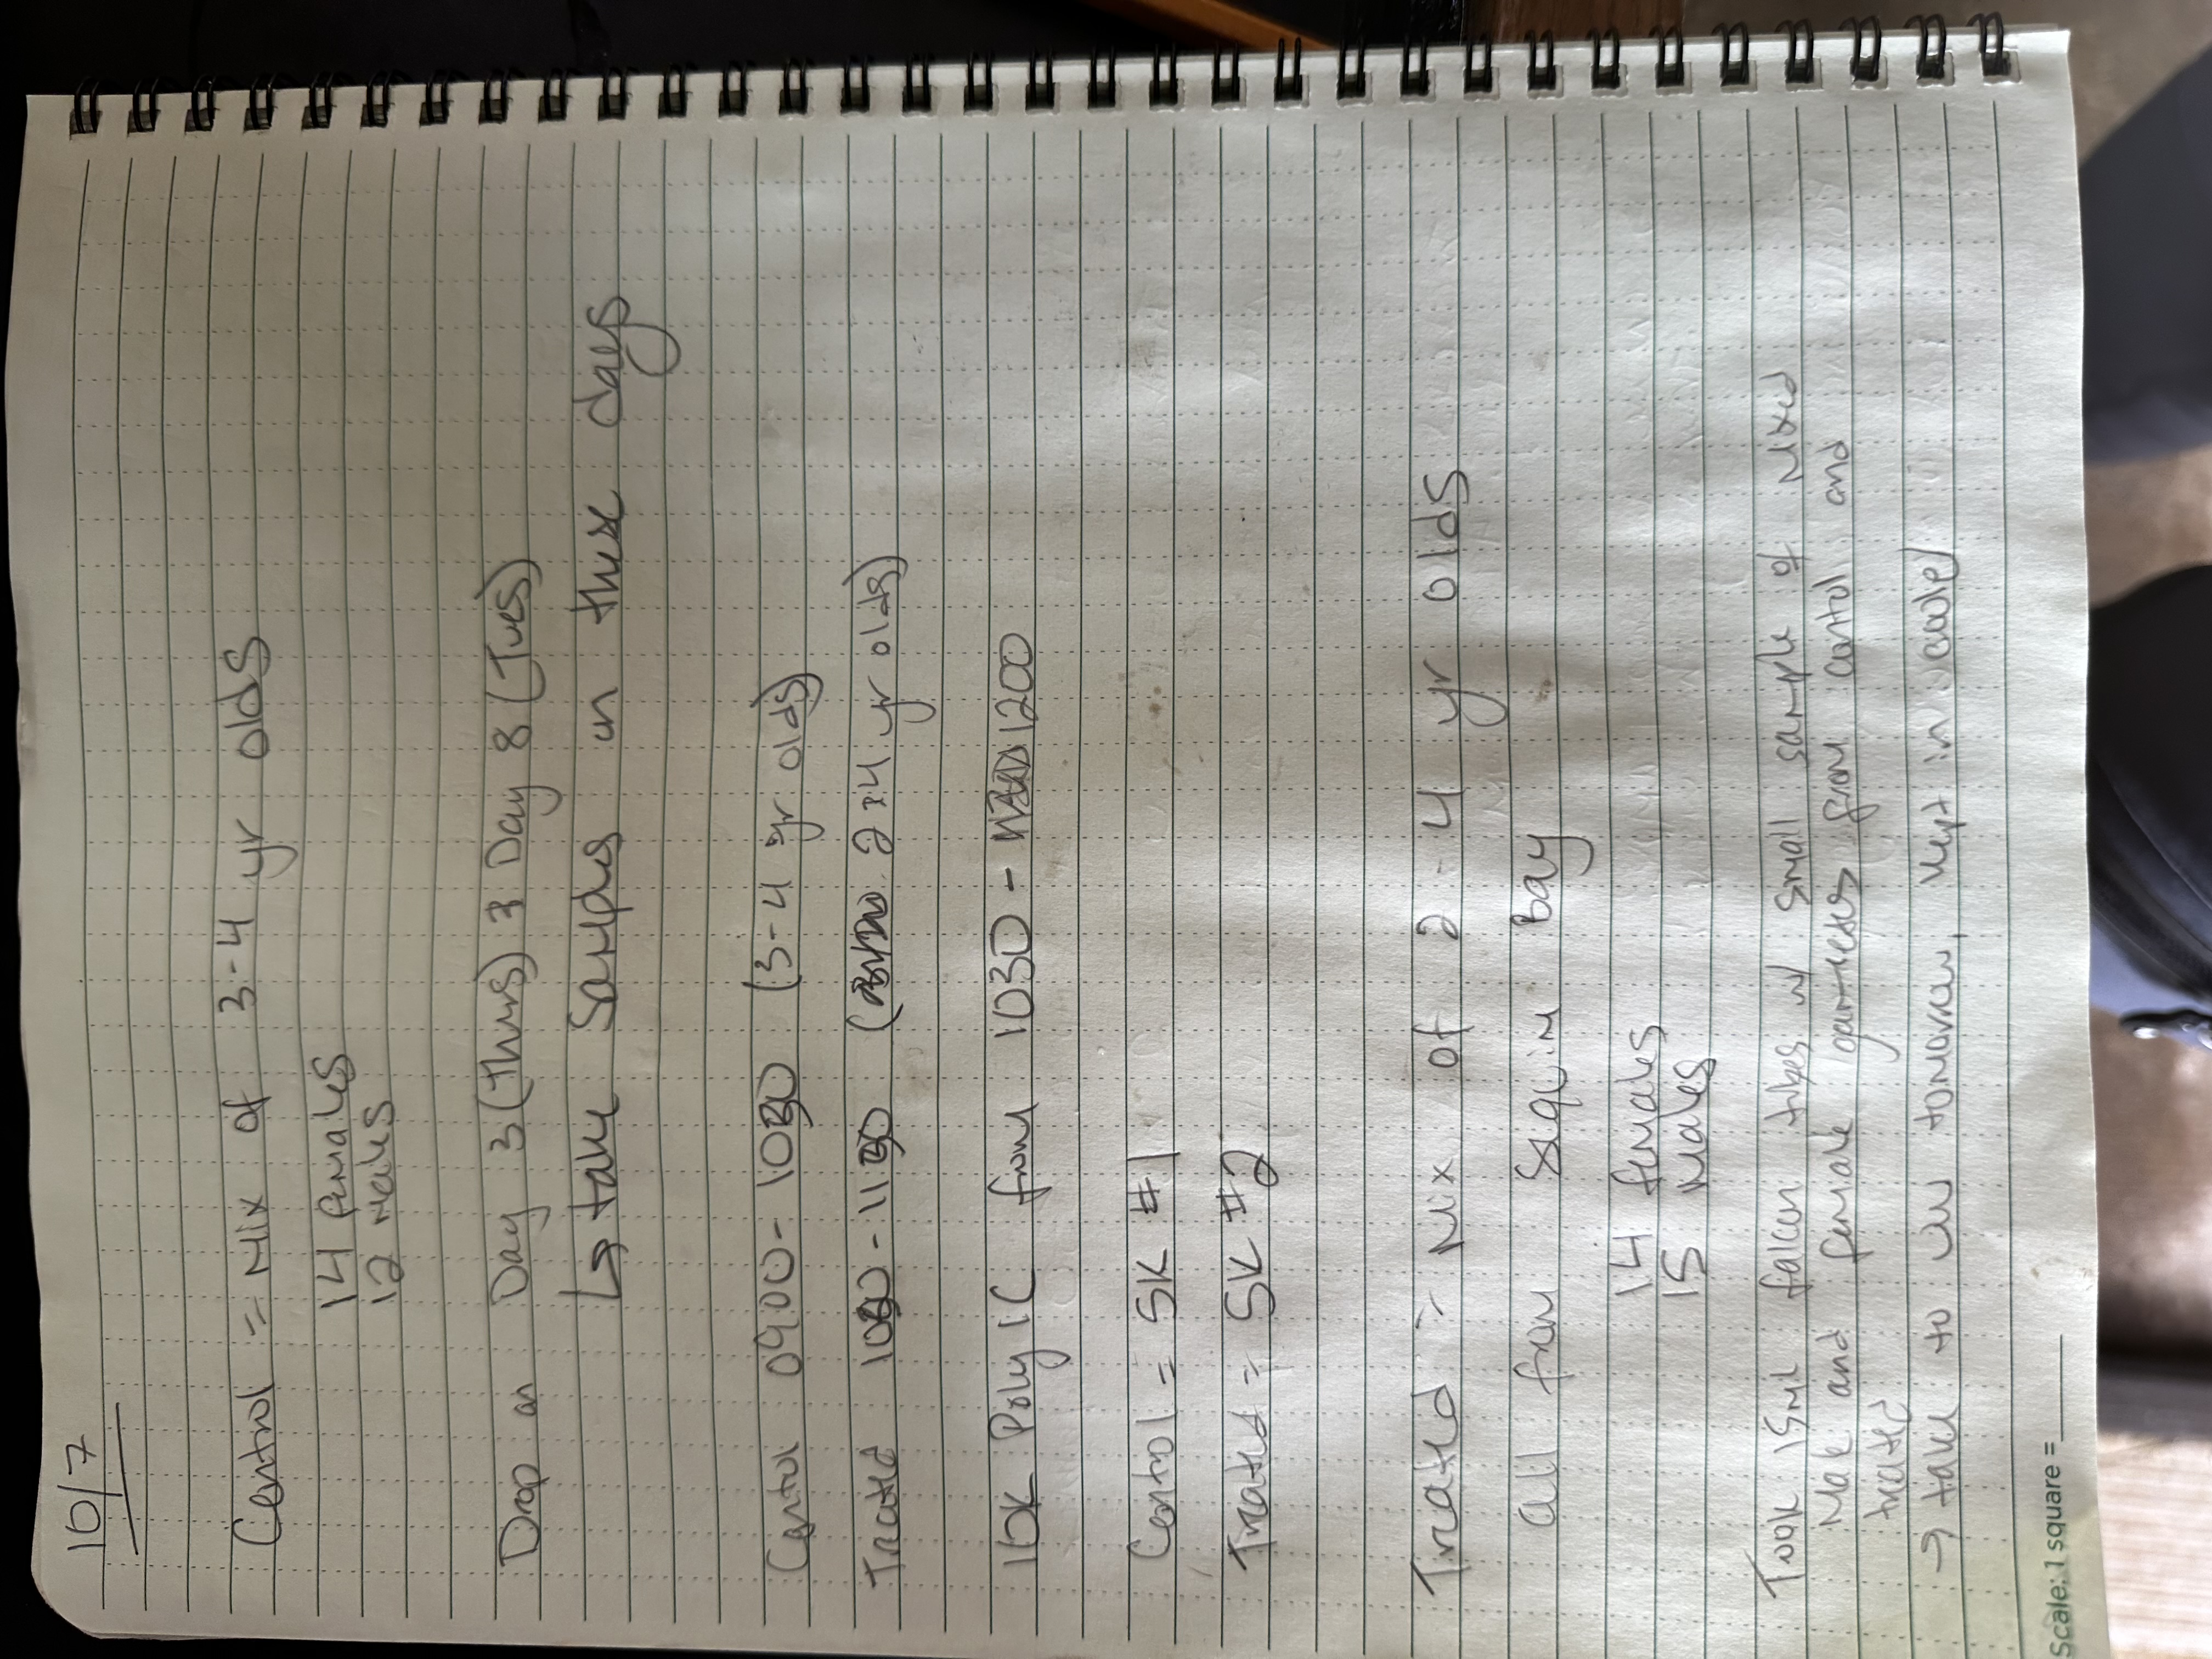 10/7
Control = Mix of 3-4 yr olds
14 females
12 males
Drop on Day 3 (Thurs) & Day 8 (Tues)
↳ take samples on these days
Control 0900 - 1030 (3-4 yr olds)
Treated 1030 - 1130 (2 & 4 yr olds)
10K Poly IC from 1030 - 1200
Control = SK #1
Treated = SK #2
Treated = Mix of 2-4 yr olds
all from Sequim Bay
14 females
15 males
Took 15mL falcon tubes w/ small sample of mixed
male and female gametes from control and
treated
→ take to UW tomorrow, kept in cooler
Scale: 1 square =